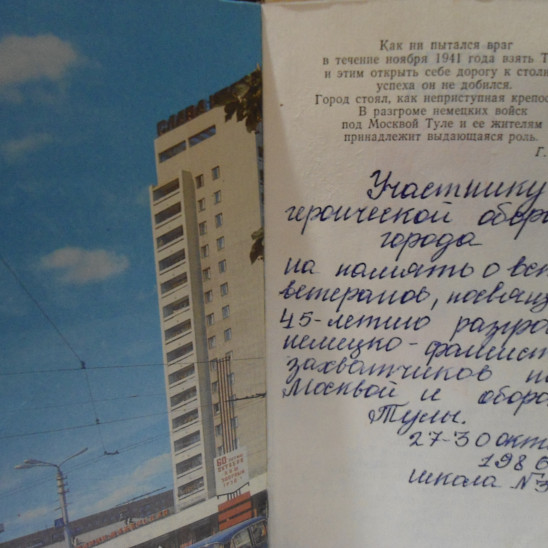 СЛАВА
60
Как ни пытался враг
в течение ноября 1941 года взять Т
и этим открыть себе дорогу к столи
успеха он не добился.
Город стоял, как неприступная крепос
В разгроме немецких войск
под Москвой Туле и ее жителям
принадлежит выдающаяся роль.
Г.
Участнику
героической обор
города
на память о вст
ветеранов, посвящ
45-летию разгро
немецко-фашист
захватчиков по
Москвой и оборо
Тулы.
27-30 окт
198
школа №3